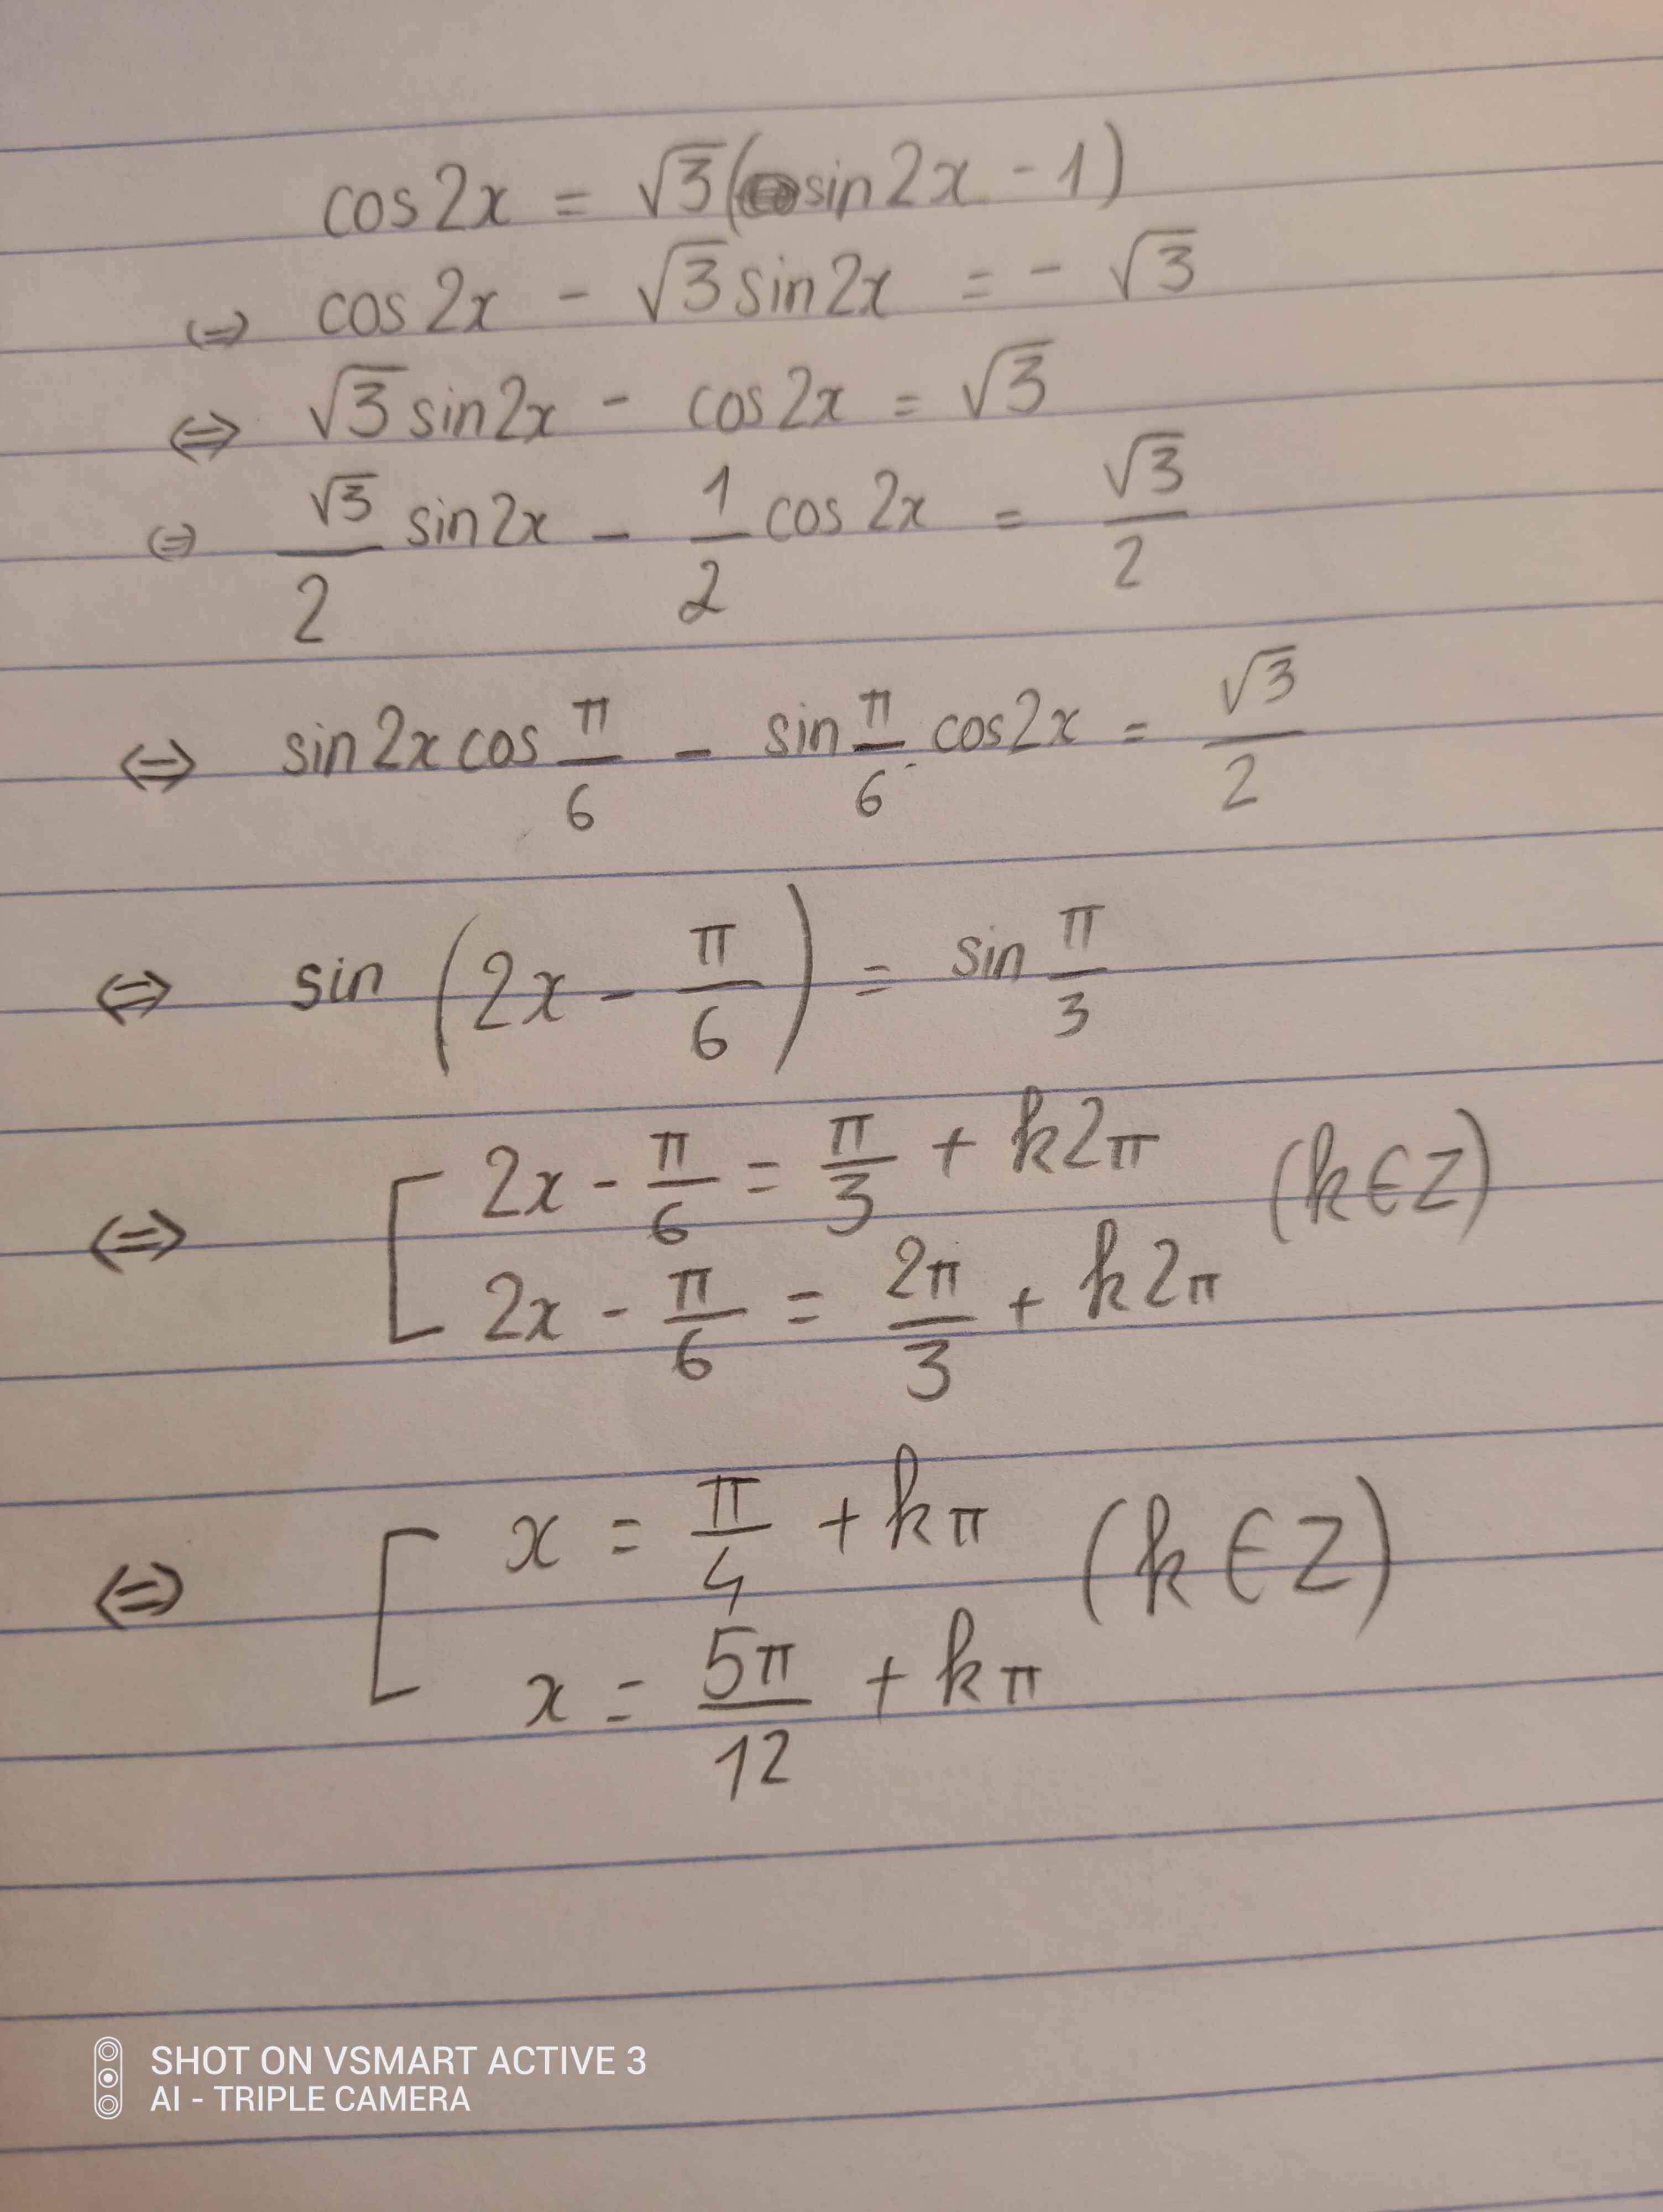 cos2x = √3(sin2x - 1)
⇔ cos2x - √3 sin2x = - √3
⇔ √3 sin2x - cos2x = √3
⇔ √3/2 sin2x - 1/2 cos2x = √3/2
⇔ sin2x cos π/6 - sin π/6 cos2x = √3/2
⇔ sin (2x - π/6) = sin π/3
⇔ [ 2x - π/6 = π/3 + k2π (k∈Z)
2x - π/6 = 2π/3 + k2π
⇔ [ x = π/4 + kπ (k∈Z)
x = 5π/12 + kπ
SHOT ON VSMART ACTIVE 3
AI - TRIPLE CAMERA